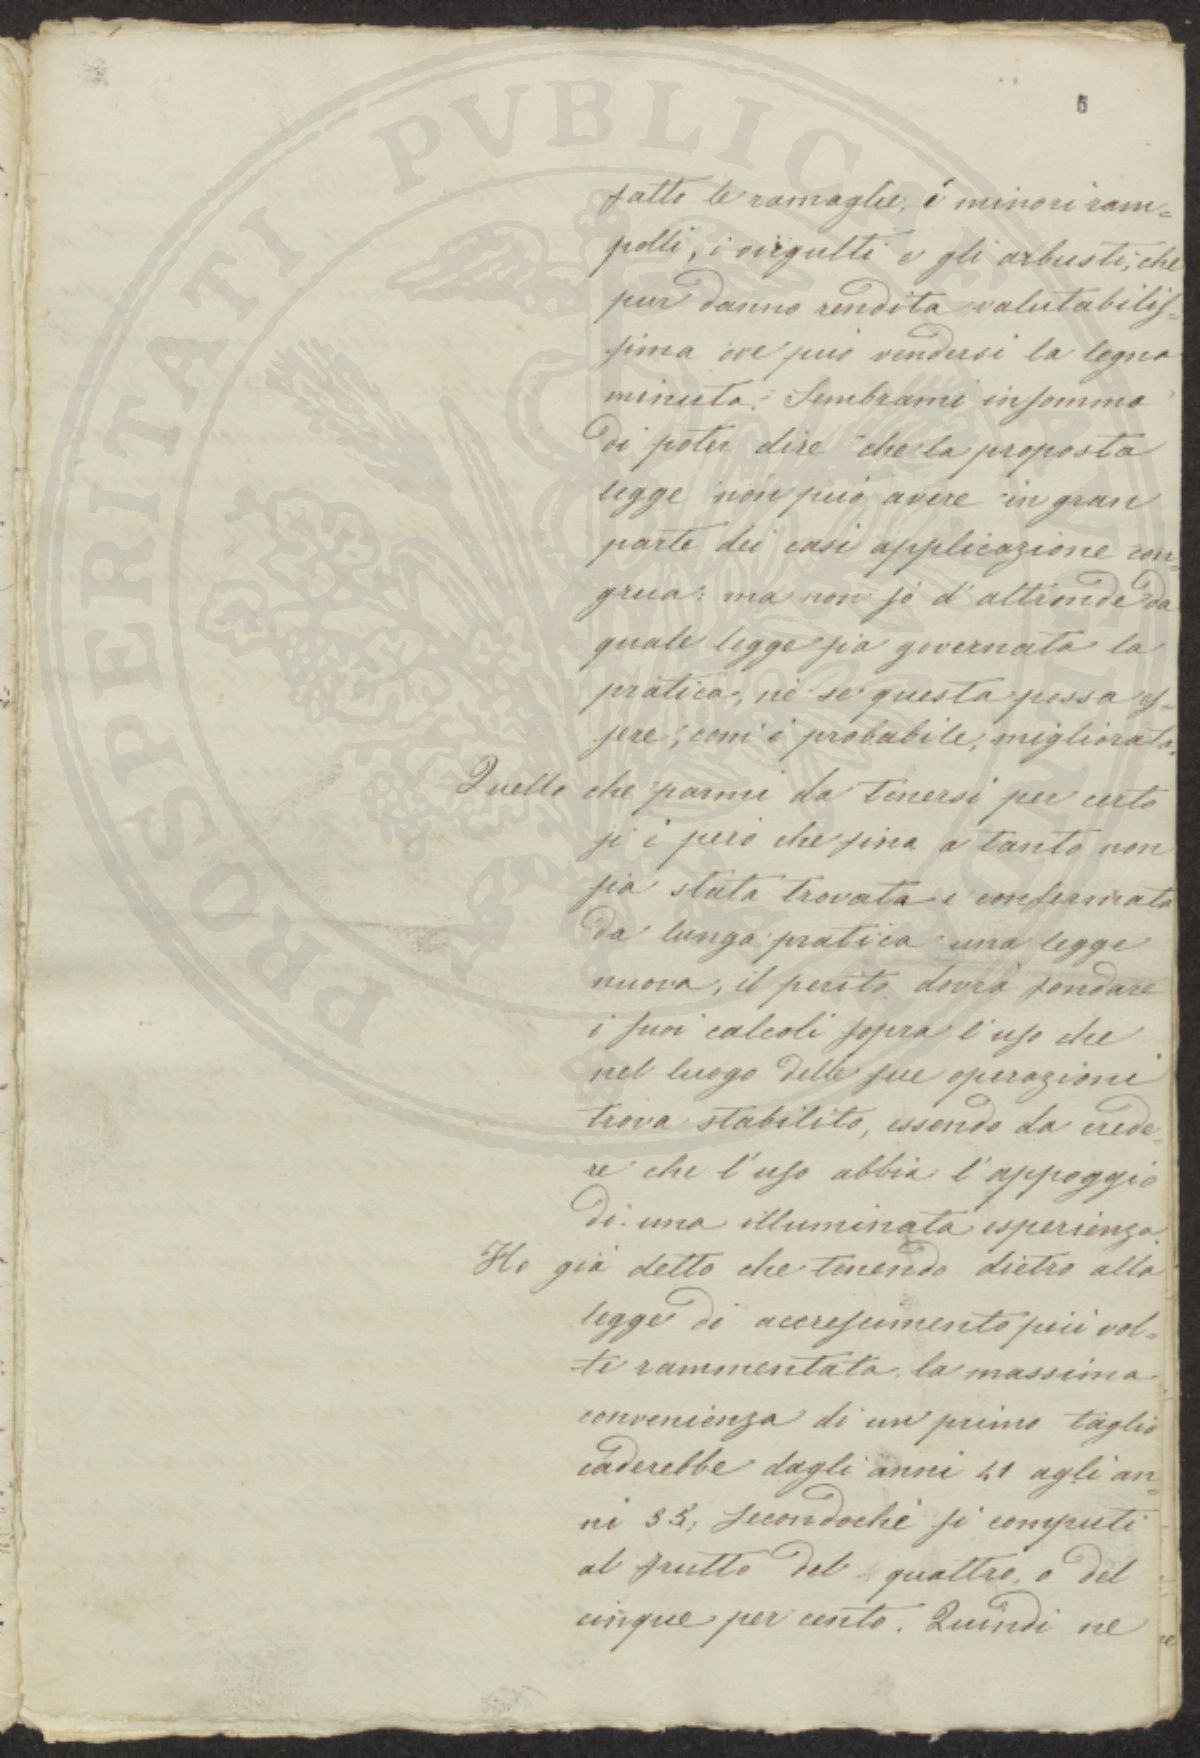 5
fatto le ramaglie, i minori ram=
polli, i virgulti e gli arbusti, che
pur danno rendita valutabilis=
sima ove può vendersi la legna
minuta. Sembrami insomma
di poter dire che la proposta
legge non può avere in gran
parte dei casi applicazione con=
grua: ma non so d'altronde da
quale legge sia governata la
pratica, nè se questa possa es=
sere, com'è probabile, migliorata.
Quello che parmi da tenersi per certo
si è però che fino a tanto non
sia stata trovata e confermata
da lunga pratica una legge
nuova, il perito dovrà fondare
i suoi calcoli sopra l'uso che
nel luogo delle sue operazioni
trova stabilito, essendo da crede=
re che l'uso abbia l'appoggio
di una illuminata esperienza.
Ho già detto che tenendo dietro alla
legge di accrescimento più vol=
te rammentata la massima
convenienza di un primo taglio
caderebbe dagli anni 41 agli an=
ni 35, secondochè si computi
al frutto del quattro, o del
cinque per cento. Quindi ne
PROSPERITATI PVBLICAE